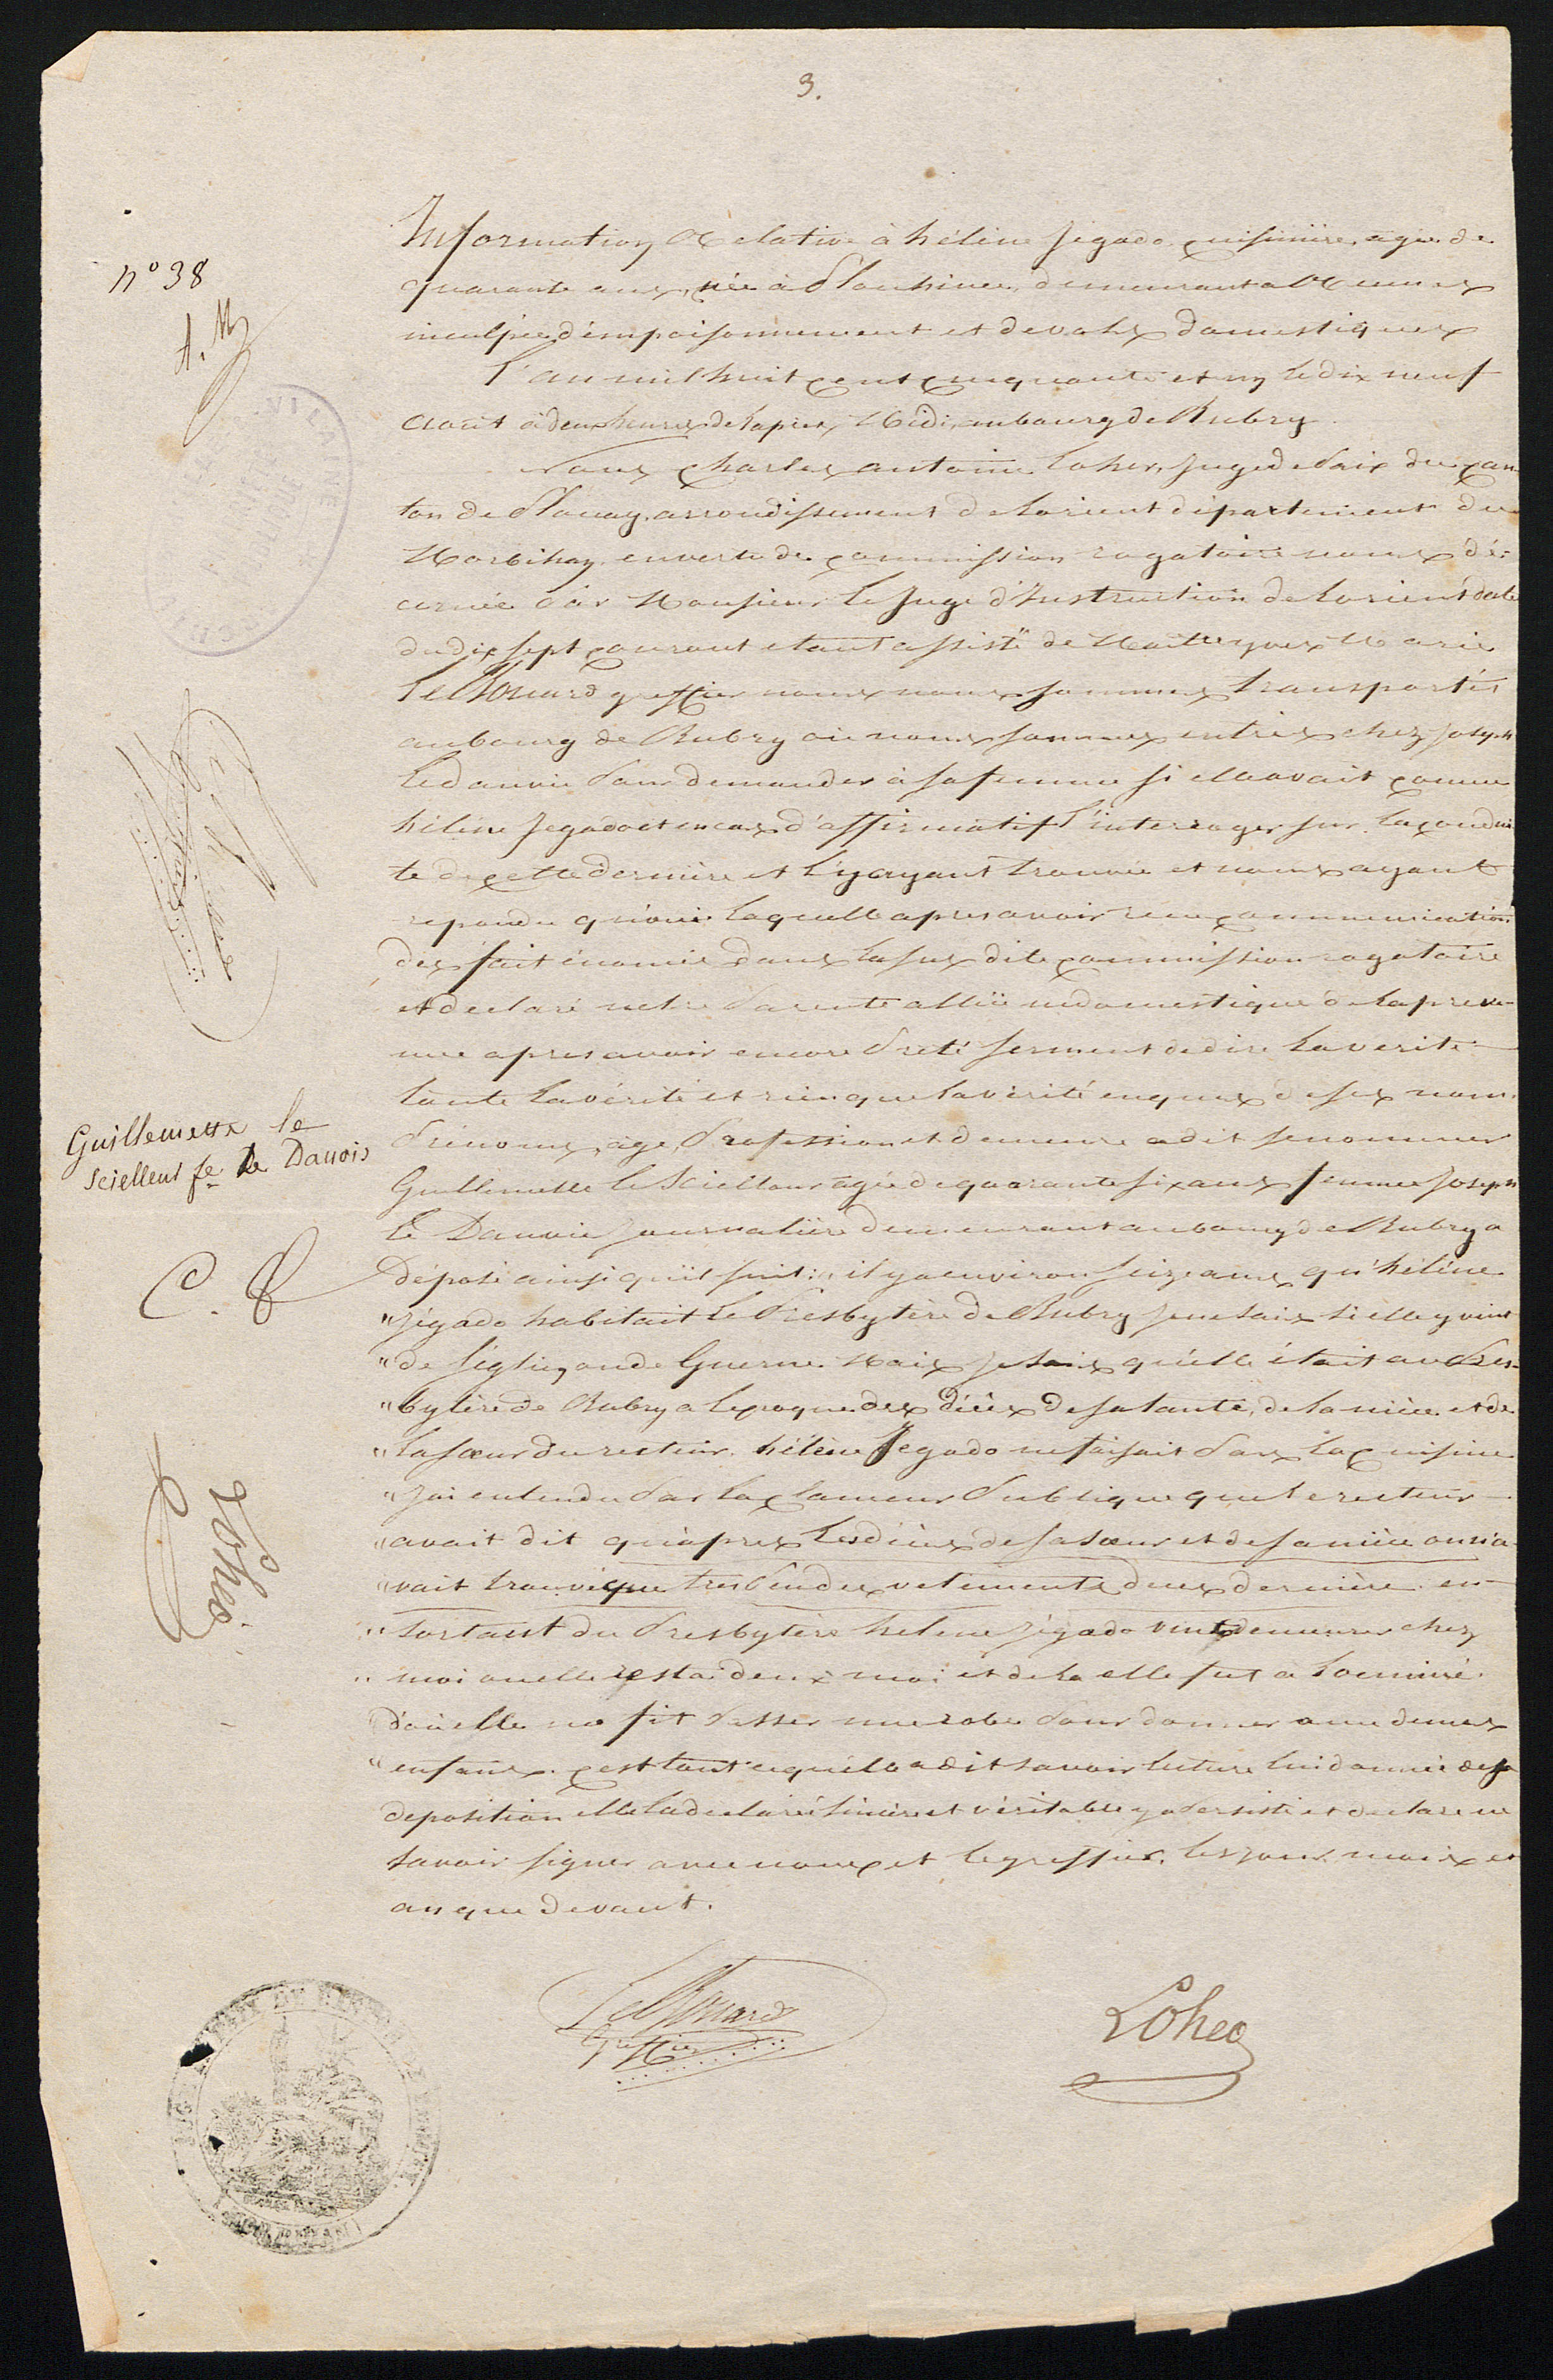 3.
n° 38
Information Relative à hélène Jégado, cuisinière, agée de
quarante ans, née à Plouhinec, demeurant a Rennes
inculpée d'empoisonnement et de vols domestiques
L'an mil huit cent cinquante et un le dix neuf
aout à deux heures de l'apres Midi, au bourg de Bubry
Nous Charles antoine Lohéo, Juge de Paix du can
ton de Plouay, arrondissement de Lorient département du
Morbihan, en vertu de commission rogatoire nous dé-
cernée Par Monsieur le Juge d'Instruction de Lorient date
du dix sept courant etant assisté de Maitre yves Marie
greffier nous nous sommes transportés
au bourg de Bubry où nous sommes entrés chez Joseph
Le danvic Pour demander à sa femme si elle avait connu
hélène Jegado et en cas d'affirmatif l'interroger sur la condui
te de cette dernière et l'y ayant trouvée et nous ayant
repondu qu'oui laquelle apres avoir reçu communication
des fait énoncié dans la sus dite commission rogatoire
et déclaré n'etre Parente alliée ni domestique de la preve-
nue apres avoir encore Preté serment de dire la verité
toute la vérité et rien que la vérité enquise de ses nom,
Prénoms, age, Profession et demeure a dit se nommer
Guillemette Le Sciellour agée de quarante six ans femme Joseph
Le Danvic Journalière demeurant au bourg de Bubry a
Déposé ainsi qu'il suit: " il y a environ seize ans qu'hélène
" Jégado habitait le Presbytère de Bubry je ne sais si elle y vint
" de Séglien, ou de Guerne. Mais je sais qu'elle était au Pres-
" bytère de Bubry a l'epoque des décès de sa tante, de la nièce et de
" la sœur du recteur. hélène Jegado ne faisait Pas la cuisine
" J'ai entendu Par la clameur Publique que le recteur
" avait dit qu'après les décès de sa sœur et de sa nièce on n'a
" vait trouvé que tres Peu des vetements de ces dernière. en
" sortant du Presbytère helene Jégado vint demeurer chez
" moi ou elle resta deux moi et de la elle fut a Locminé.
d'où elle me fit Passer une robe Pour donner a un de mes
" enfans. c'est tout ce qu'elle a dit savoir lecture lui donnée de sa
deposition elle l'a declarée sincère et véritable y a Persisté et declare ne
savoir signer avec nous et le greffier. les jour mois et
an que devant.
Guillemette le
scielleur fe Le Danois
C. L
Lohéo
Greffier
Lohéo